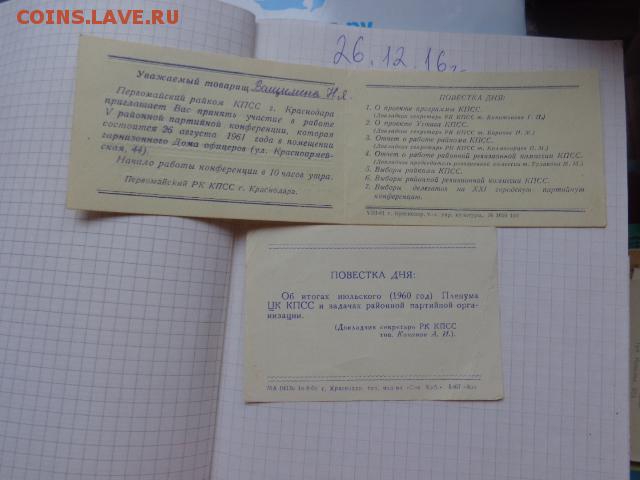 COINS.LAVE.RU
26.12.16г.
Уважаемый товарищ
Первомайский райком КПСС г. Краснодара
приглашает Вас принять участие в работе
V районной партийной конференции, которая
состоится 26 августа 1961 года в помещении
гарнизонного Дома офицеров (ул. Красноармей-
ская, 44).
Начало работы конференции в 10 часов утра.
Первомайский РК КПСС г. Краснодара.
ПОВЕСТКА ДНЯ:
1. О проекте программы КПСС.
(Докладчик секретарь РК КПСС т.
2. О проекте Устава КПСС.
(Докладчик секретарь РК КПСС т.
3. Отчет о работе райкома КПСС.
(Докладчик секретарь РК КПСС т.
4. Отчет о работе районной ревизионной комиссии КПСС.
(Докладчик председатель ревизионной комиссии т.
5. Выборы райкома КПСС.
6. Выборы районной ревизионной комиссии КПСС.
7. Выборы делегатов на XXI городскую партийную
конференцию.
г. Краснодар,
ПОВЕСТКА ДНЯ:
Об итогах июльского (1960 год) Пленума
ЦК КПСС и задачах районной партийной орга-
низации.
(Докладчик секретарь РК КПСС
тов. Кананов А. И.).
г. Краснодар,